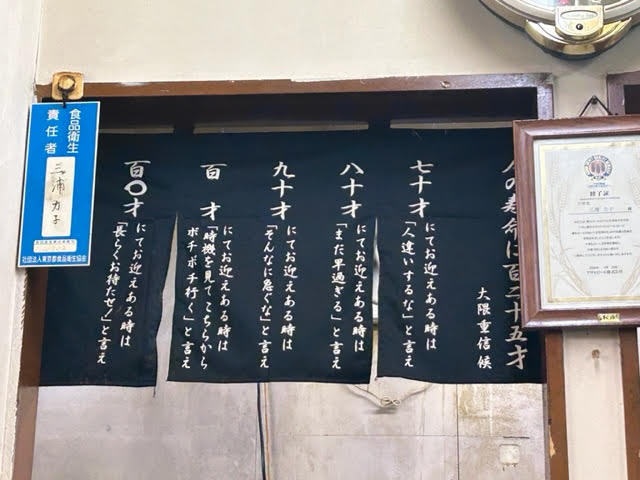 人の寿命は百二十五才
大隈重信候
七十才
にてお迎えある時は
「人違いするな」と言え
八十才
にてお迎えある時は
「まだ早過ぎる」と言え
九十才
にてお迎えある時は
「そんなに急ぐな」と言え
百才
にてお迎えある時は
「時機を見てこちらから
ボチボチ行く」と言え
百〇才
にてお迎えある時は
「長らくお待たせ!」と言え
食品衛生
責任者
三浦力子
社団法人東京都食品衛生協会
修了証